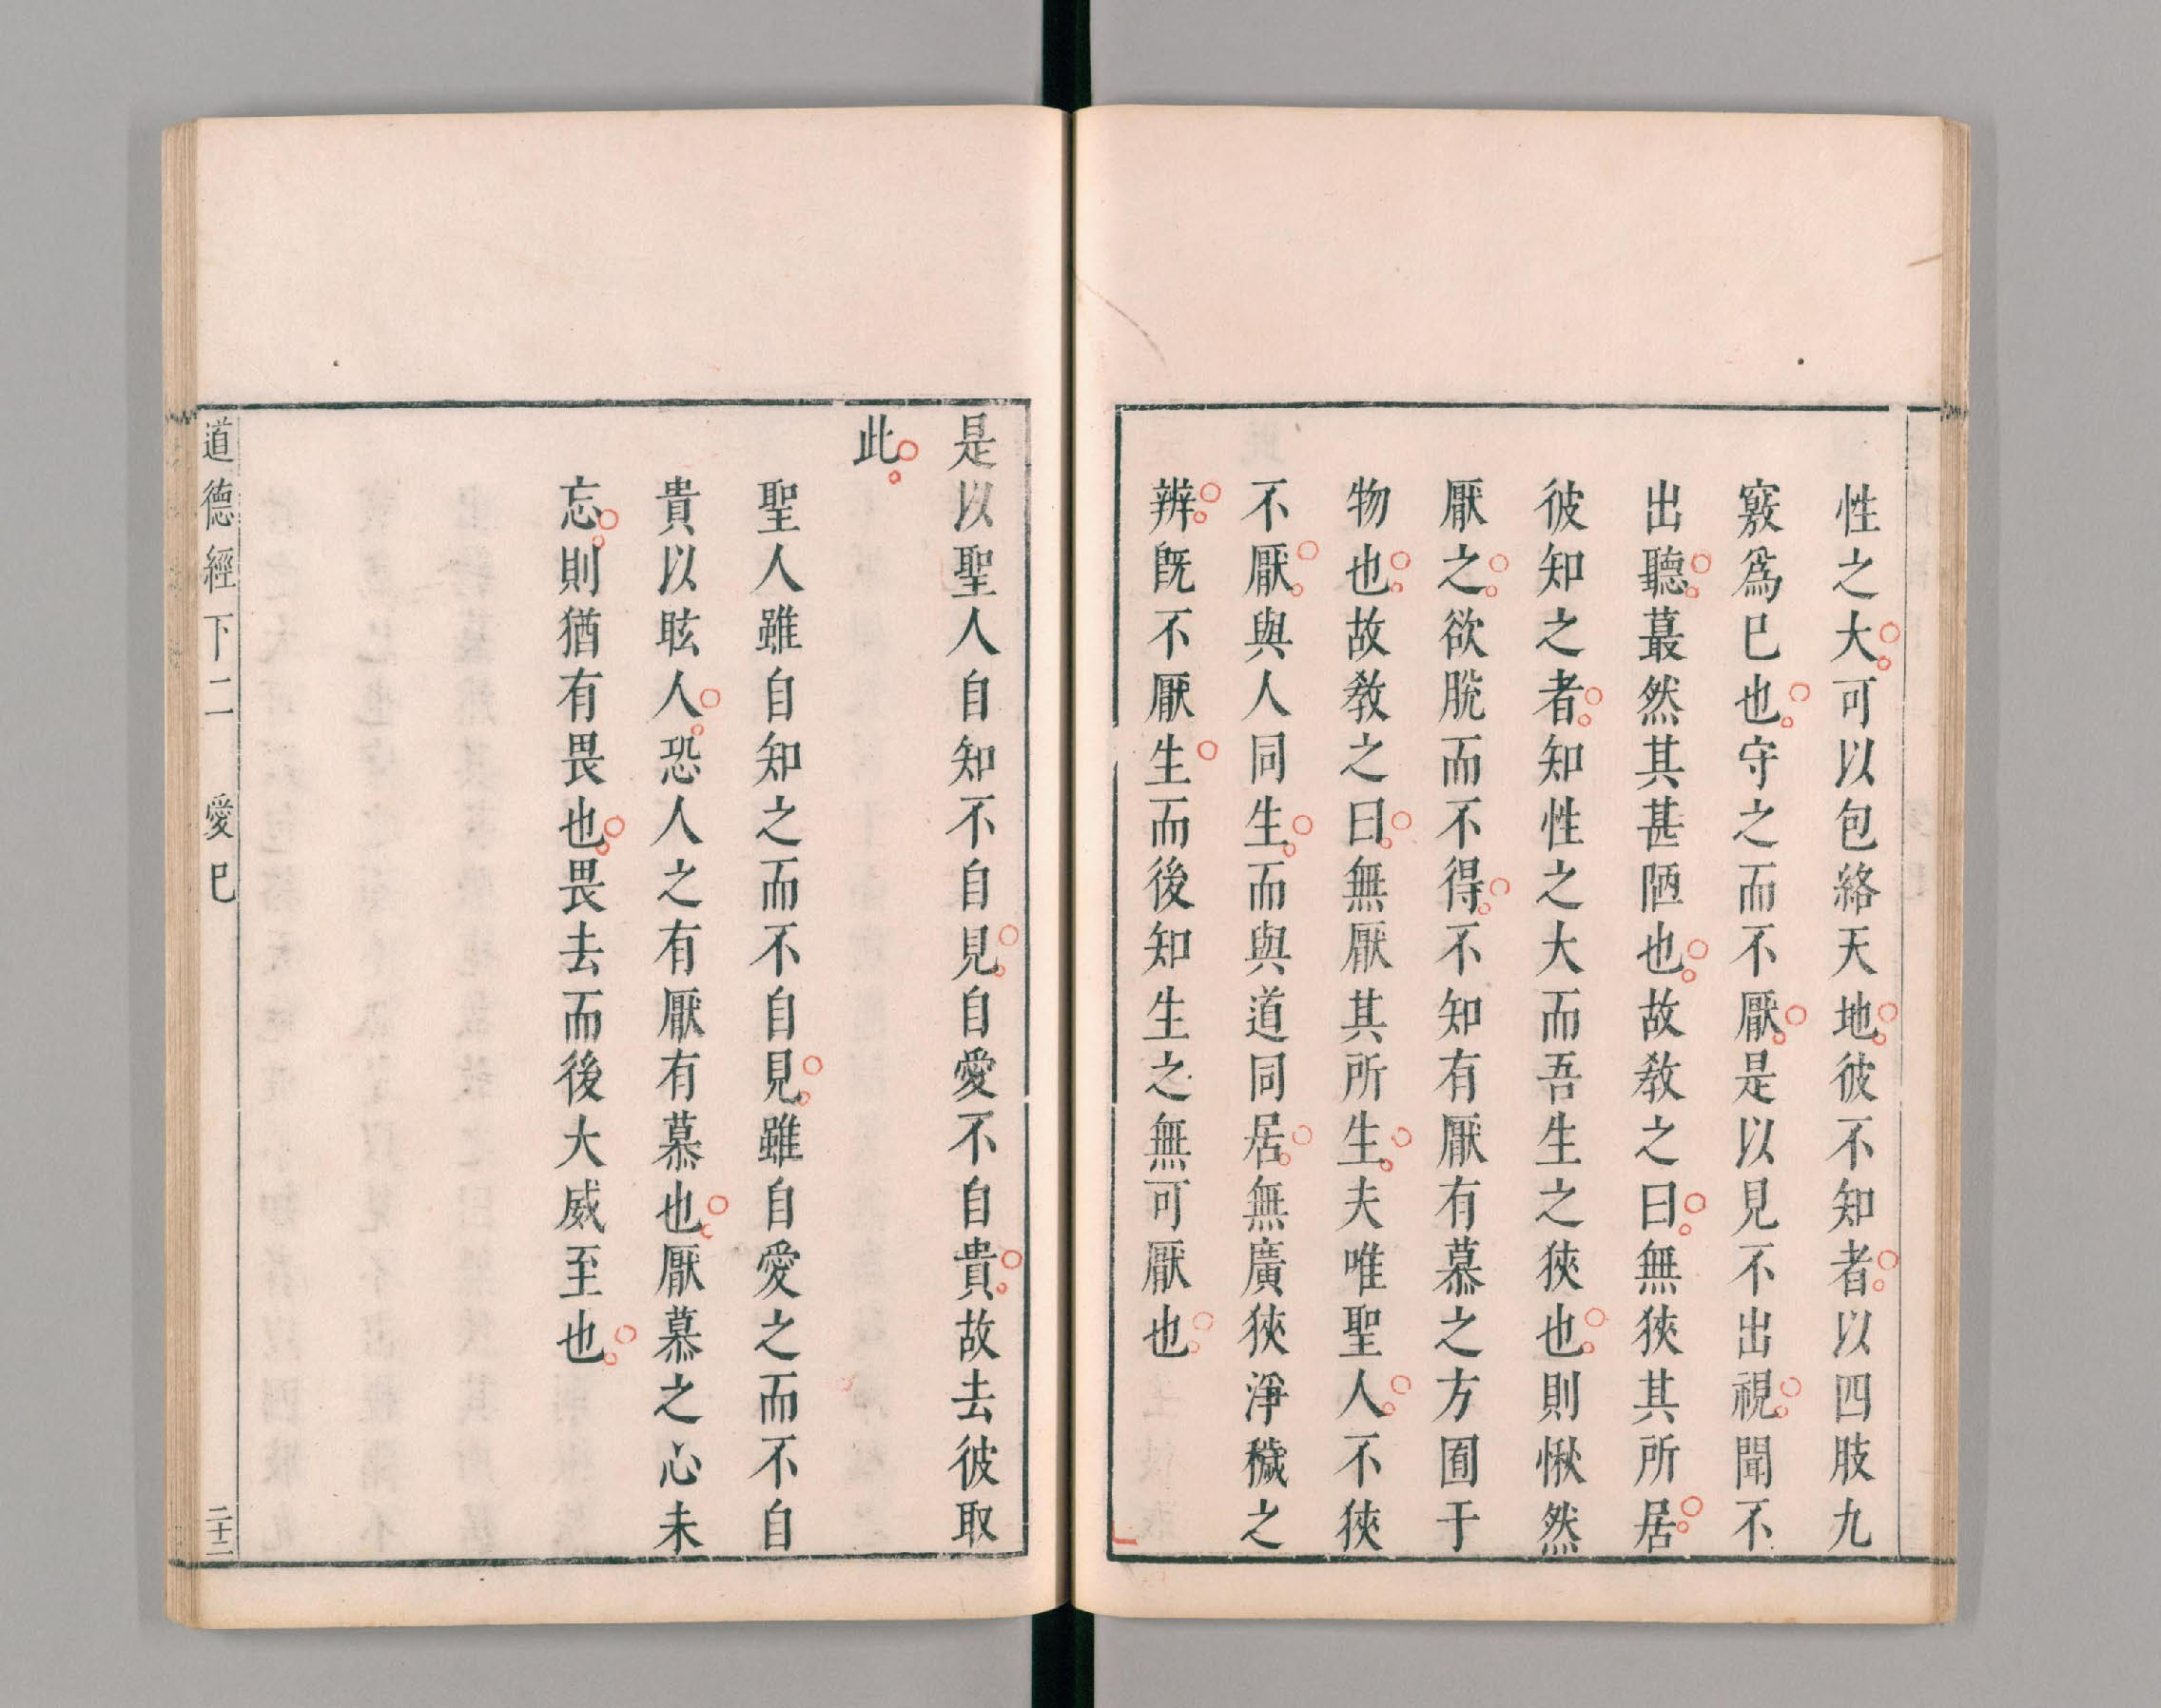 性之大可以包絡天地彼不知者以四肢九
竅爲已也守之而不厭是以見不出視聞不
出聽蕞然其甚陋也故教之曰無狹其所居
彼知之者知性之大而吾生之狹也則愀然
厭之欲脫而不得不知有厭有慕之方囿于
物也故教之曰無厭其所生夫唯聖人不狹
不厭與人同生而與道同居無廣狹淨穢之
辨旣不厭生而後知生之無可厭也
是以聖人自知不自見自愛不自貴故去彼取
此
聖人雖自知之而不自見雖自愛之而不自
貴以眩人恐人之有厭有慕也厭慕之心未
忘則猶有畏也畏去而後大威至也
道德經下二 愛巳 二十二